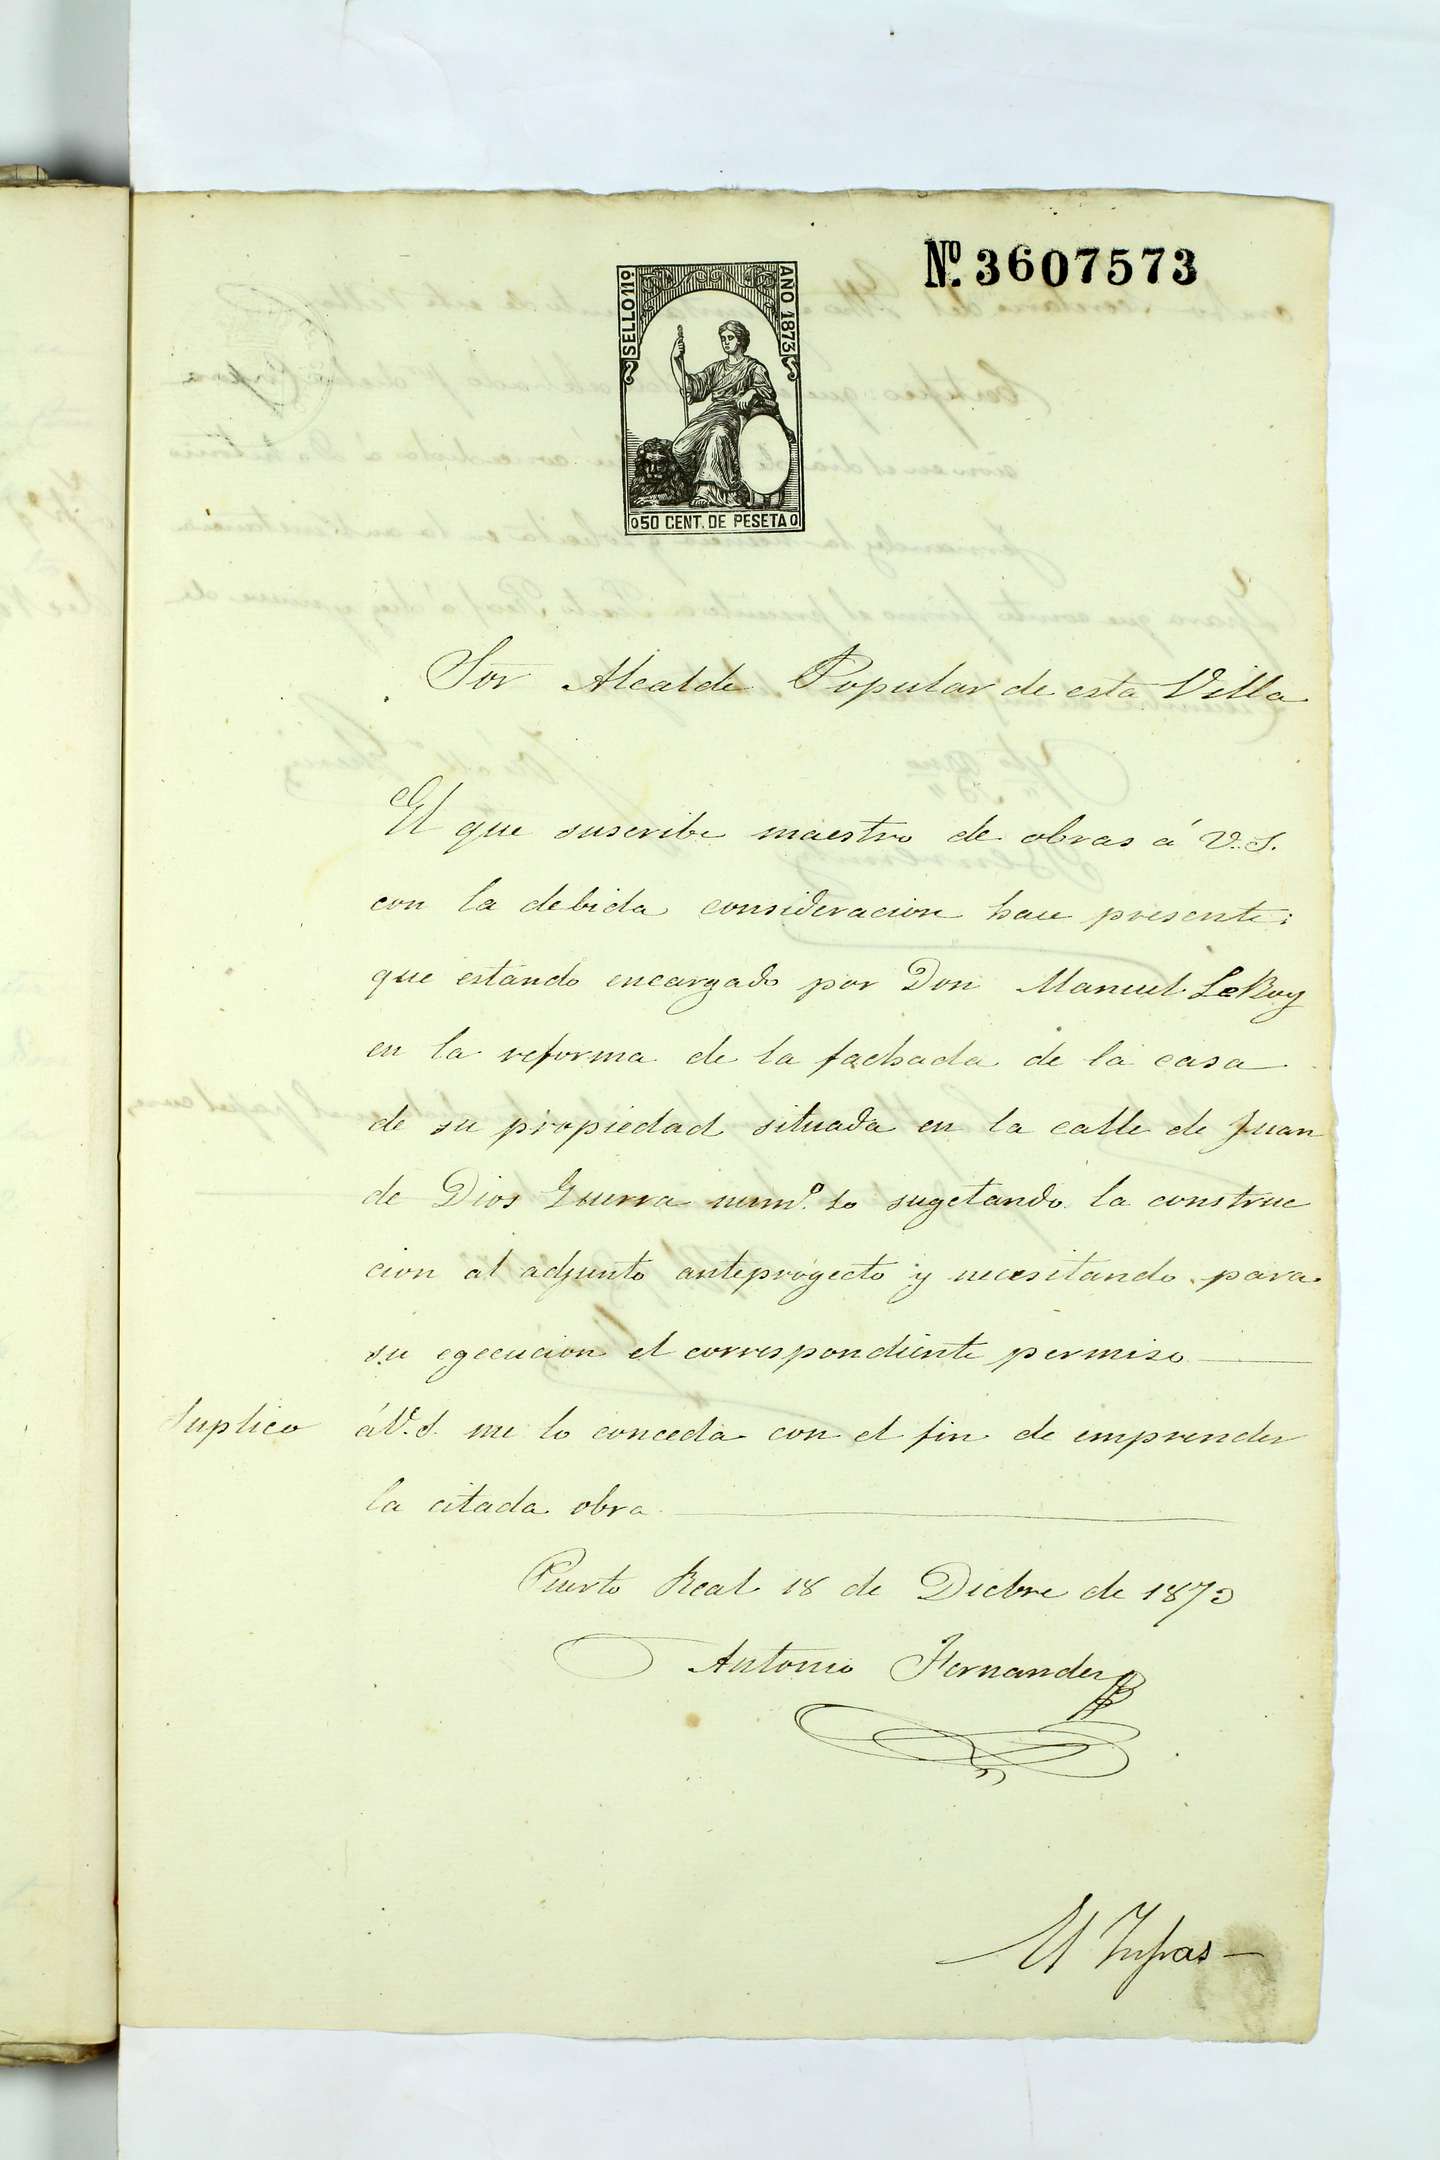 Nº. 3607573
SELLO 11º
AÑO 1873
50 CENT. DE PESETA
Sor Alcalde Popular de esta Villa
El que suscribe maestro de obras á V. S.
con la debida consideracion hace presente:
que estando encargado por Don Manuel LeRoy
en la reforma de la fachada de la casa
de su propiedad situada en la calle de Juan
de Dios Guerra numº. 10 sugetando la construc
cion al adjunto anteproyecto y necesitando para
su egecucion el correspondiente permiso
Suplico á V. S. me lo conceda con el fin de emprender
la citada obra
Puerto Real 18 de Dicbre de 1873
Antonio Fernandez